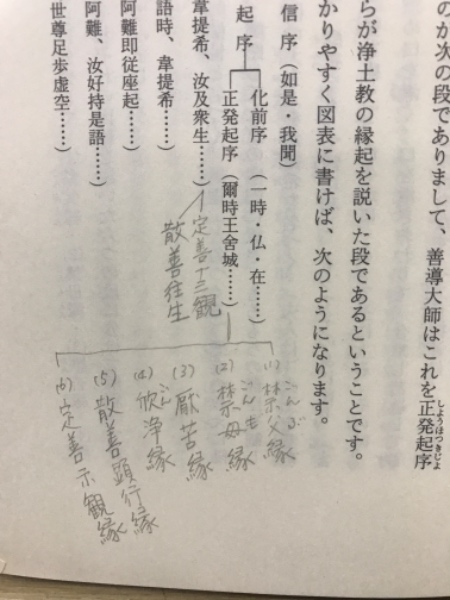 のが次の段でありまして、善導大師はこれを正発起序
しょうほつきじょ
らが浄土教の縁起を説いた段であるということです。
かりやすく図表に書けば、次のようになります。
信序（如是・我聞）
起序
化前序（一時・仏・在……）
正発起序（爾時王舎城……）
韋提希、汝及衆生……）
語時、韋提希……）
阿難即従座起……）
阿難、汝好持是語……）
世尊足歩虚空……）
定善十三観
散善往生
(1) 禁父縁
ごんぶ
(2) 禁母縁
ごんも
(3) 厭苦縁
(4) 欣浄縁
ごん
(5) 散善顕行縁
(6) 定善示観縁